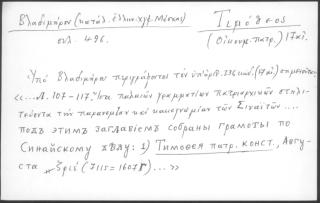 Βλαδιμήρου (κατάλ. ἑλλην. χφ. Μόσχας)
σελ. 496.
Τιμόθεος
(Οἰκουμ. πατρ.) 17 αἰ.
Ὑπὸ Βλαδιμήρου περιγράφεται τὸν ὑπ' ἀρ. 336 κωδ. (17 αἰ)
«....Λ. 107-117. Ἴσα παλαιῶν γραμμάτων πατριαρχικῶν στηλι-
τεύοντα τὴν παρανομίαν καὶ κακογνωμίαν τῶν Σιναϊτῶν ....
подъ этимъ заглавіемъ собраны грамоты по
Синайскому дѣлу: 1) Тимоѳея патр. конст., Авгу-
ста ͵ζριέ (7115=1607) ...»